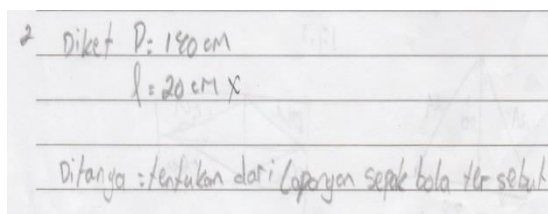 2 Diket P: 180 cM
l = 20 cM x
Ditanya : tentukan dari lapangan sepak bola ter sebut